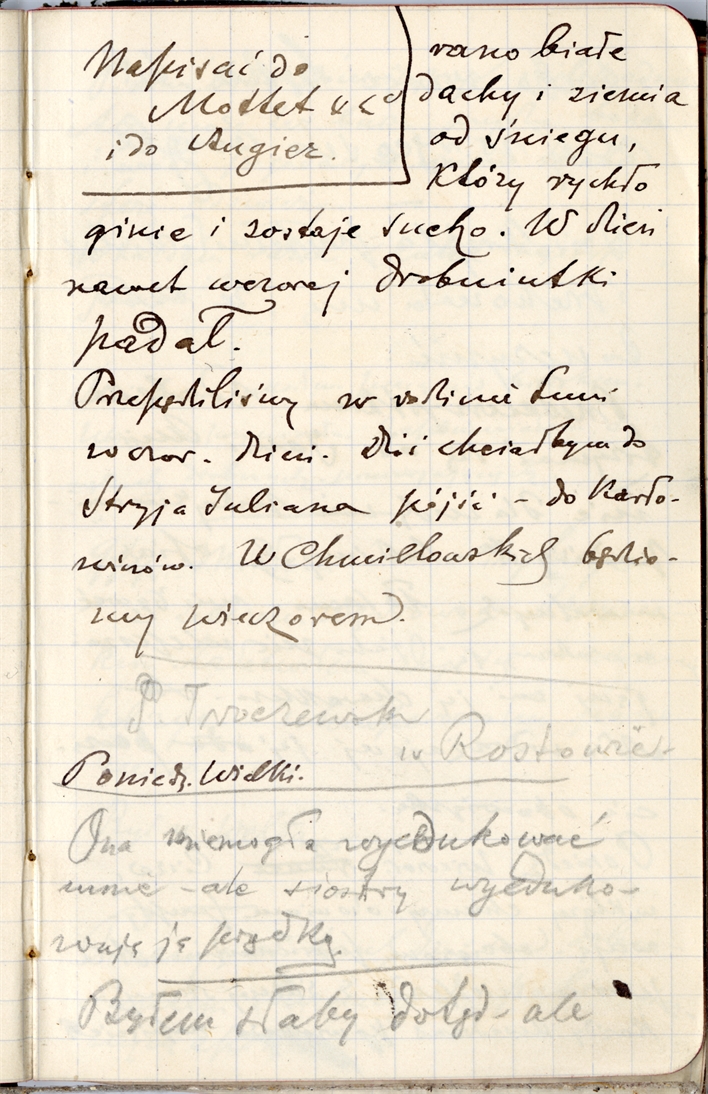 Napisać do
Mottet
i do Augier.
rano białe
dachy i ziemia
od śniegu,
który rychło
ginie i zostaje sucho. W dzień
nawet wczoraj drobniutki
padał.
Przepędziliśmy w rodzinie
wczor. dzień. Dziś chciałbym do
Stryja Juliana pójść – do Karło-
wiczów. U Chmielowskich będzie-
my wieczorem.
P. Troczewska
w Rostowie
Poniedz. Wielki.
Ona niemogła wyedukować
mnie – ale siostry wyeduko-
wują ją prędko.
Byłem słaby dotąd – ale